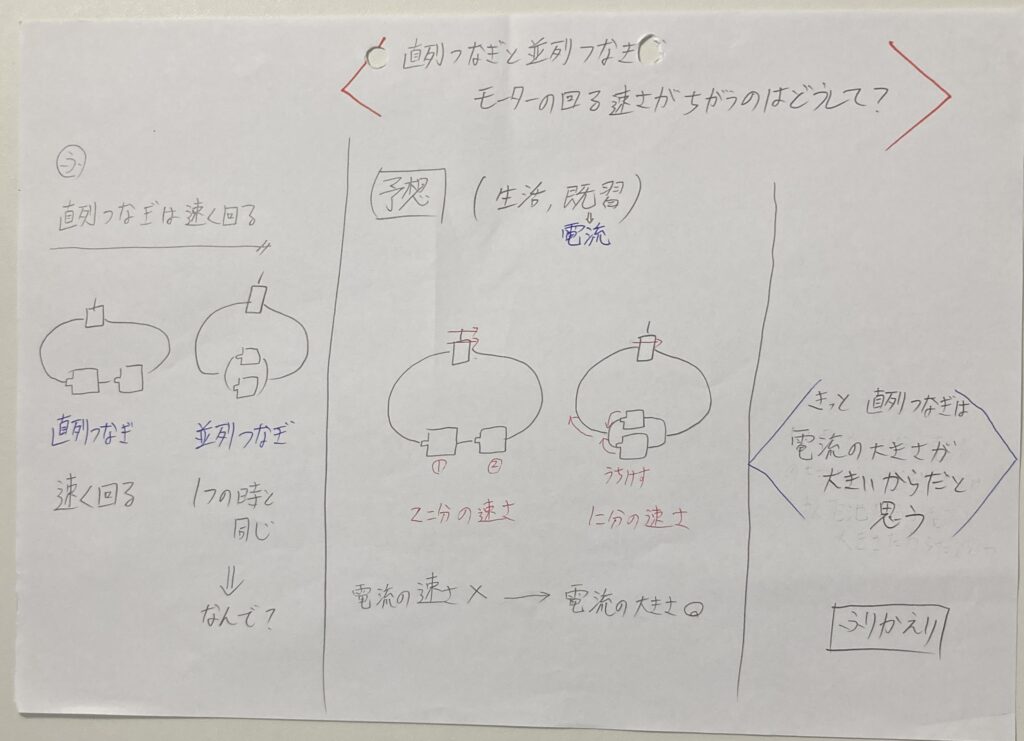 直列つなぎと並列つなぎ
モーターの回る速さがちがうのはどうして?
ふ
直列つなぎは速く回る
直列つなぎ
速く回る
並列つなぎ
1つの時と
同じ
⇓
なんで?
予想 (生活,既習)
⇓
電流
① ②
2コ分の速さ
うちけす
1コ分の速さ
電流の速さ× → 電流の大きさ○
きっと 直列つなぎは
電流の大きさが
大きいからだと
思う
ふりかえり